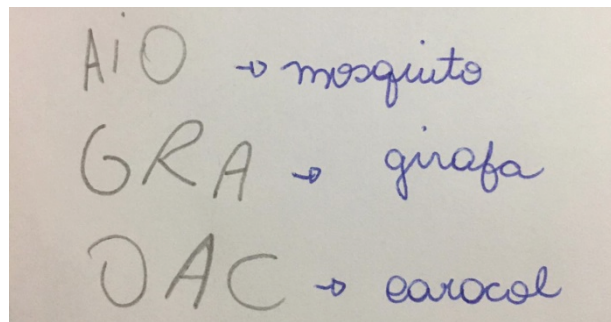 AiO → mosquito
GRA → girafa
OAC → carocol